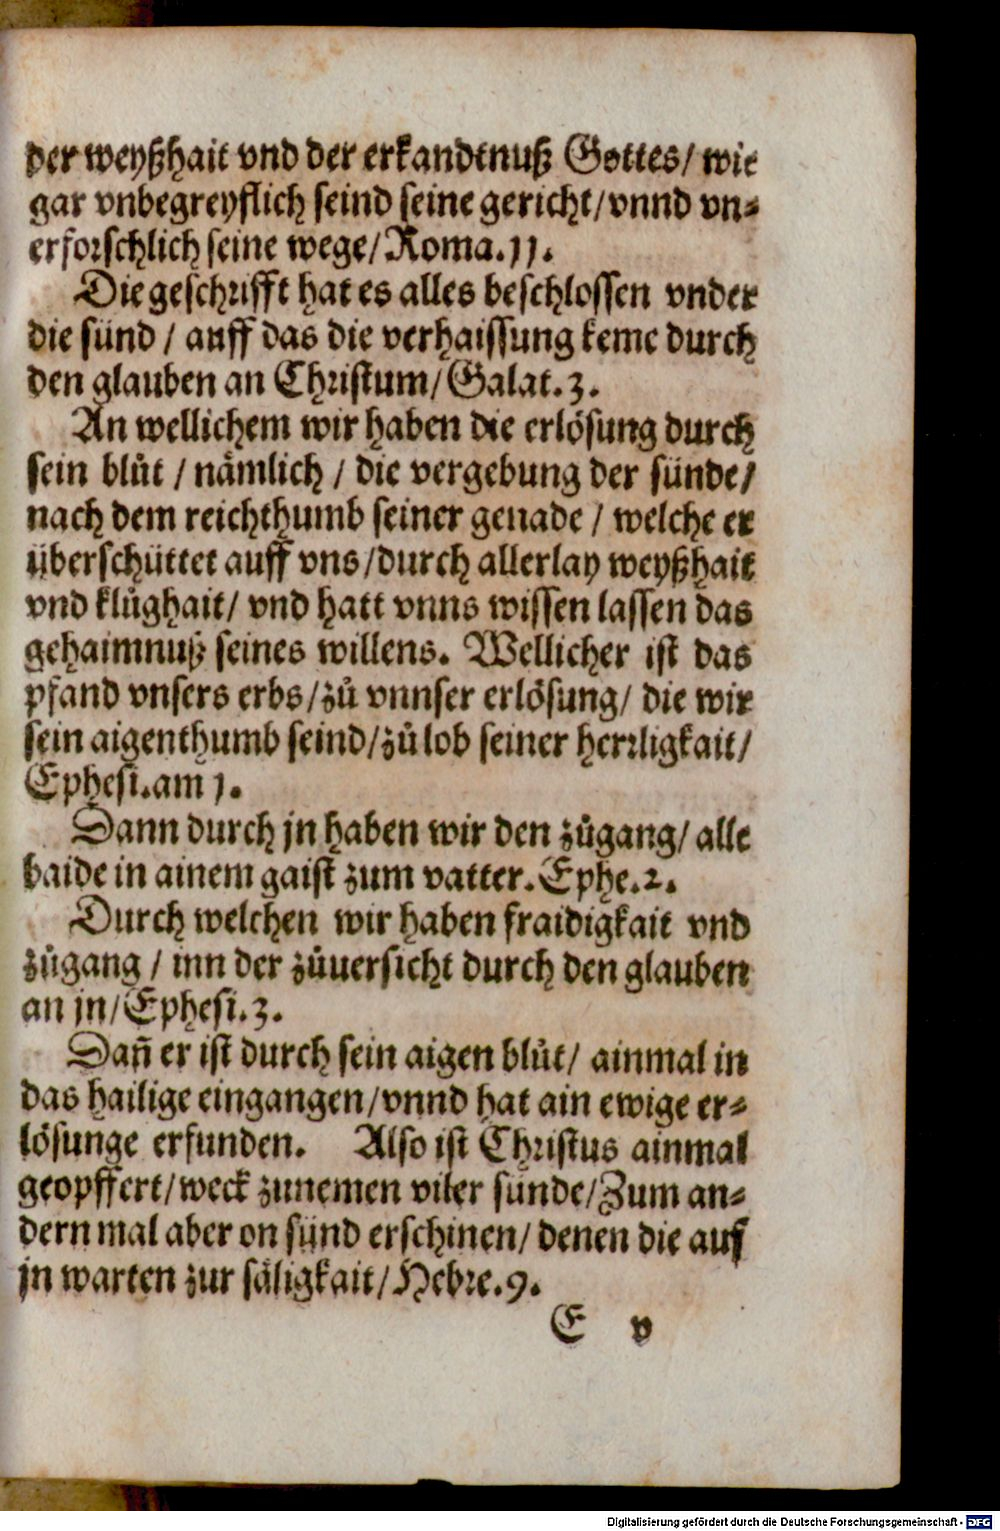 der weyßhait vnd der erkandtnuß Gottes/ wie
gar vnbegreyflich seind seine gericht/ vnnd vn-
erforschlich seine wege/ Roma.11.
Die geschrifft hat es alles beschlossen vnder
die sünd / auff das die verhaissung keme durch
den glauben an Christum/ Galat.3.
An wellichem wir haben die erlösung durch
sein blůt / nämlich / die vergebung der sünde/
nach dem reichthumb seiner genade / welche er
überschüttet auff vns/ durch allerlay weyßhait
vnd klůghait/ vnd hatt vnns wissen lassen das
gehaimnuß seines willens. Wellicher ist das
pfand vnsers erbs/ zů vnnser erlösung/ die wir
sein aigenthumb seind/ zů lob seiner herrligkait/
Ephesi. am 1.
Dann durch jn haben wir den zůgang/ alle
baide in ainem gaist zum vatter. Ephe.2.
Durch welchen wir haben fraidigkait vnd
zůgang / inn der zůuersicht durch den glauben
an jn/ Ephesi.3.
Dañ er ist durch sein aigen blůt/ ainmal in
das hailige eingangen/ vnnd hat ain ewige er-
lösunge erfunden. Also ist Christus ainmal
geopffert/ weck zunemen viler sünde/ Zum an-
dern mal aber on sünd erschinen/ denen die auf
jn warten zur säligkait/ Hebre.9.
E v
Digitalisierung gefördert durch die Deutsche Forschungsgemeinschaft - DFG